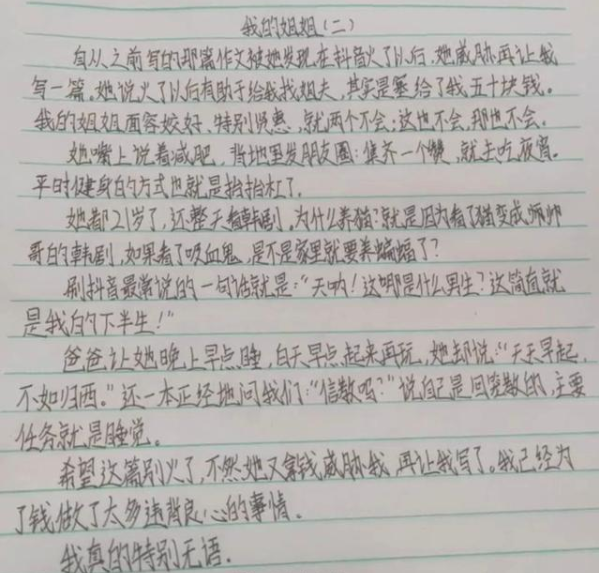 我的姐姐(二)
自从之前写的那篇作文被她发现在抖音火了以后,她威胁再让我
写一篇。她说火了以后有助于给我找姐夫,其实是塞给了我五十块钱。
我的姐姐面容姣好、特别贤惠,就两个不会:这也不会,那也不会。
她嘴上说着减肥,背地里发朋友圈:集齐一个赞,就去吃夜宵。
平时健身的方式也就是抬抬杠了。
她都21岁了,还整天看韩剧。为什么养猫?就是因为看了猫变成帅
哥的韩剧,如果看了吸血鬼,是不是家里就要养蝙蝠了?
刷抖音最常说的一句话就是:“天呐!这哪是什么男生?这简直就
是我的下半生!”
爸爸让她晚上早点睡,白天早点起来再玩,她却说:“天天早起,
不如归西。”还一本正经地问我们:“信教吗?”说自己是回笼教的,主要
任务就是睡觉。
希望这篇别火了,不然她又拿钱威胁我,再让我写了。我已经为
了钱做了太多违背良心的事情。
我真的特别无语.